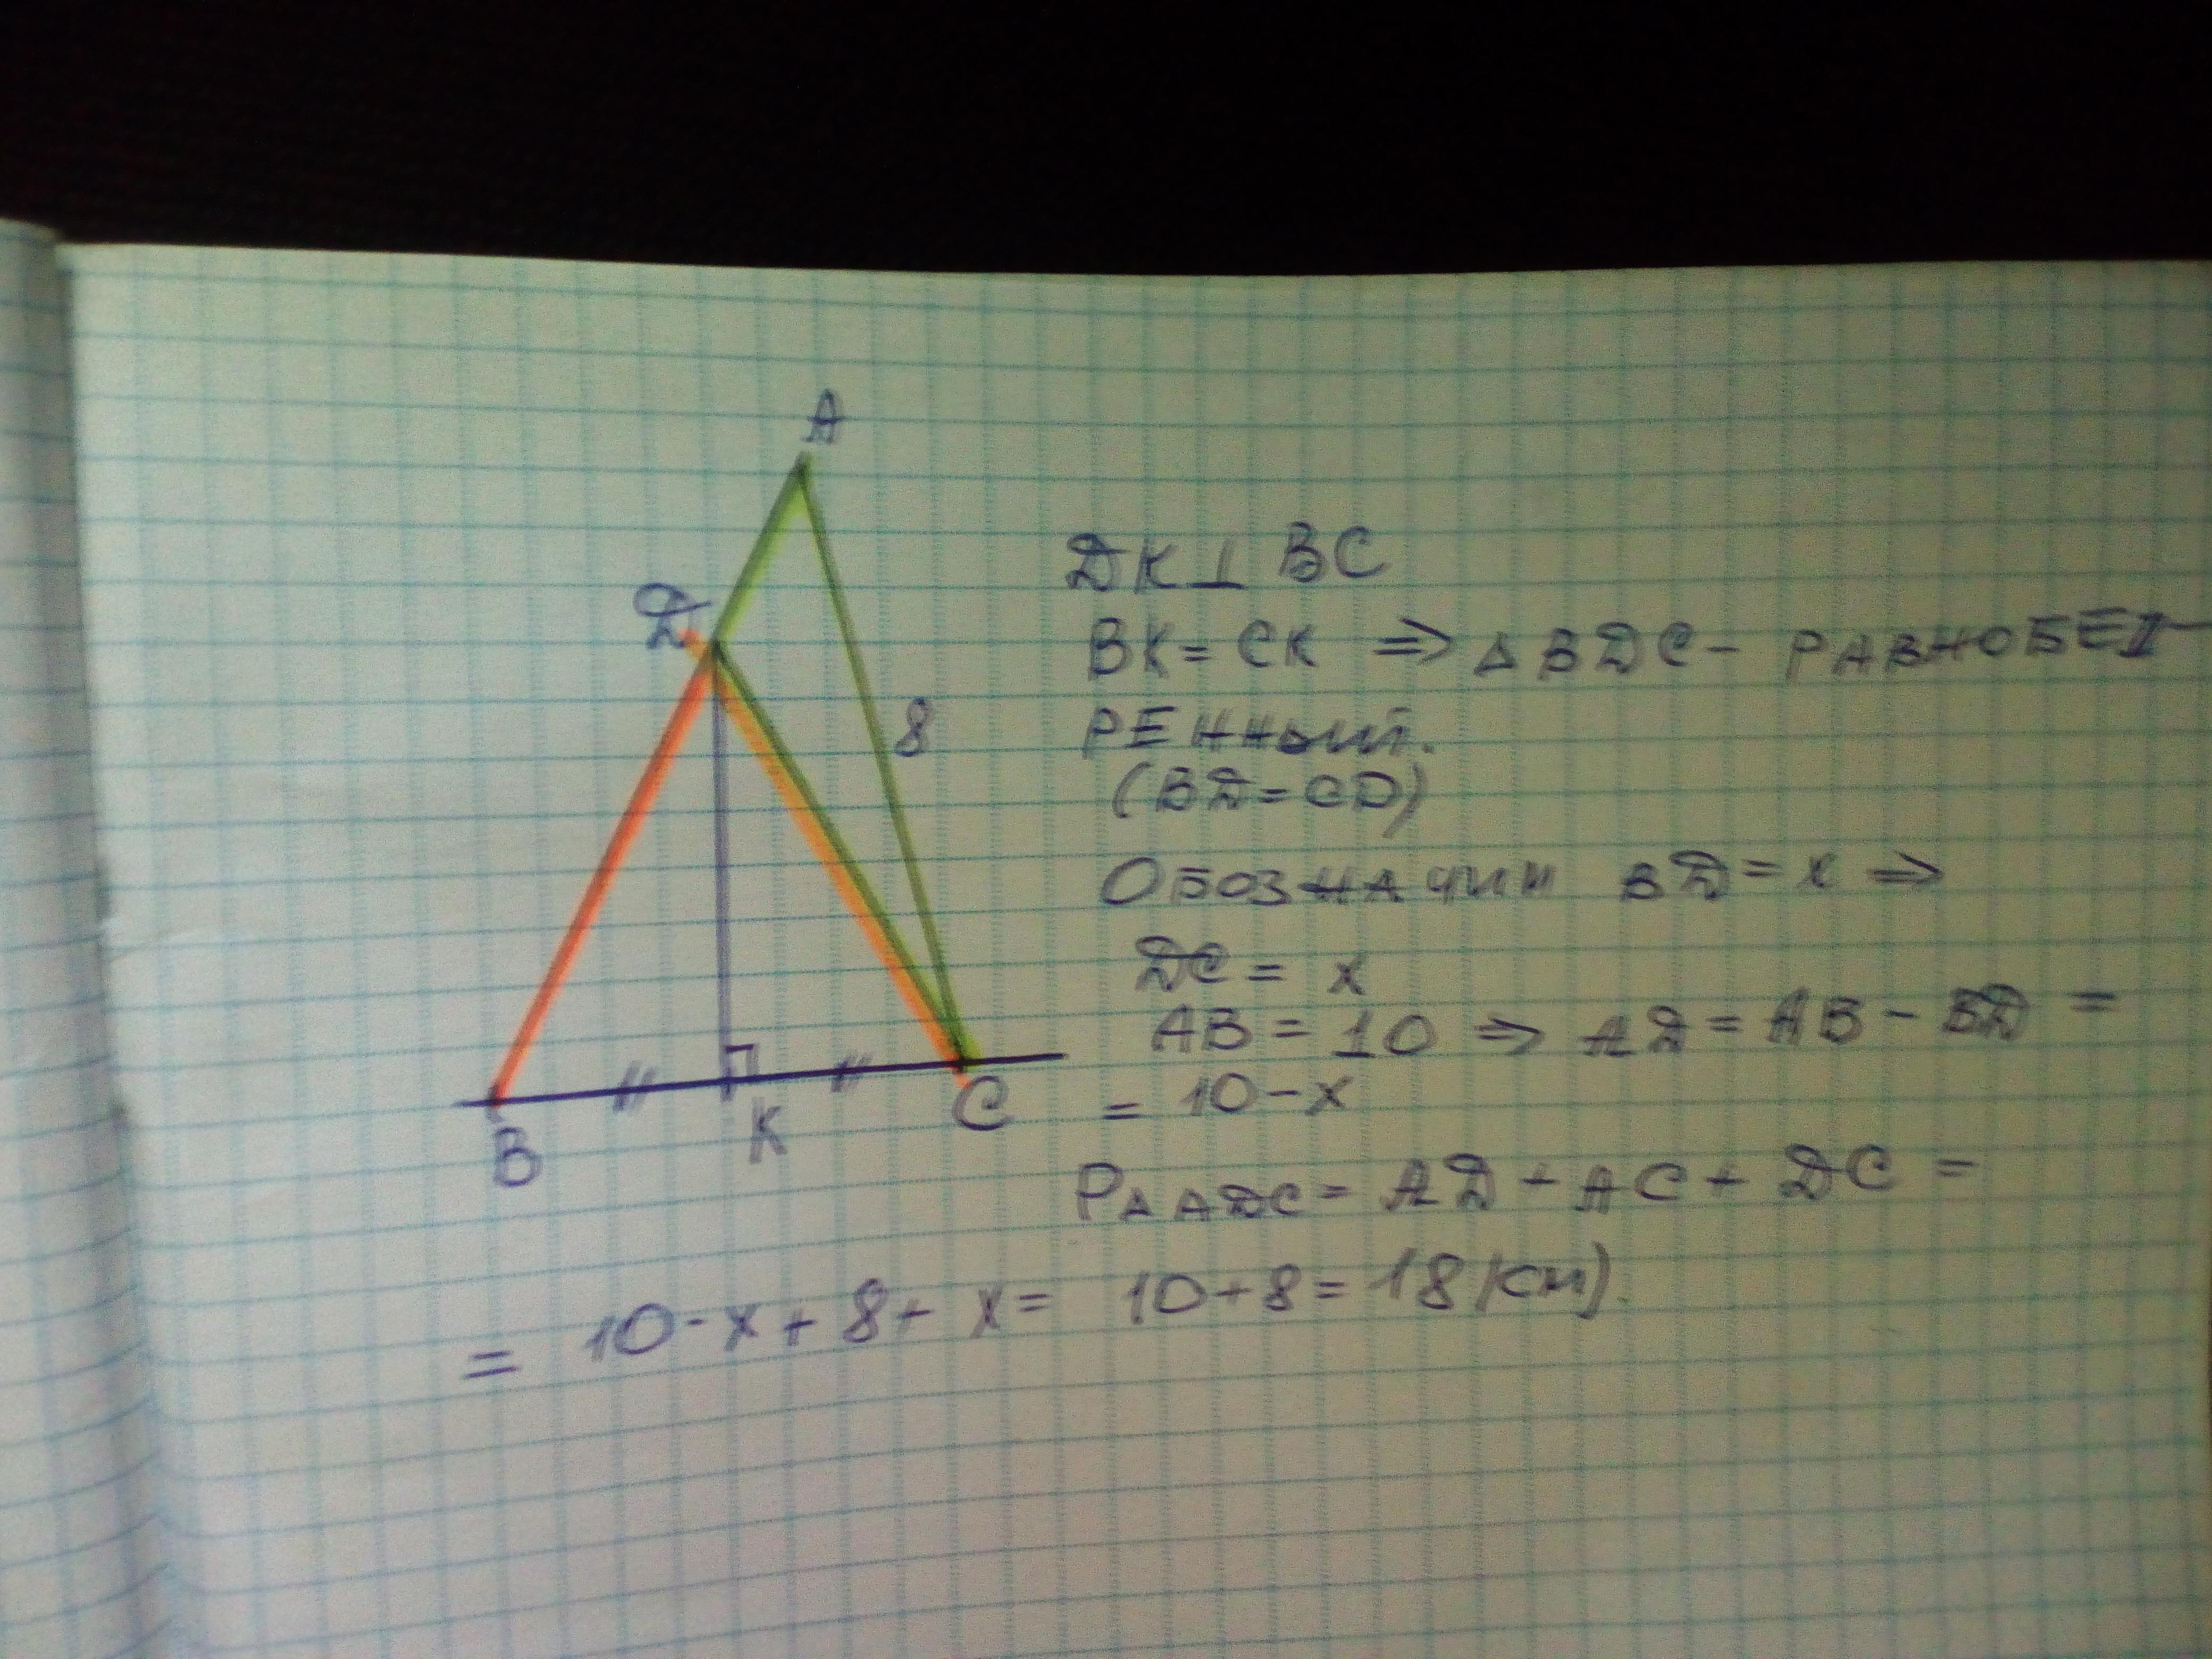 А
D
8
В
К
С
DK ⊥ ВС
ВК = СК ⇒ ΔBDC - РАВНОБЕД-
РЕННЫЙ.
(BD = CD)
ОБОЗНАЧИМ BD = x ⇒
DC = x
АВ = 10 ⇒ AD = АВ - BD =
= 10 - x
PΔADC = AD + AC + DC =
= 10 - x + 8 + x = 10 + 8 = 18 (см).